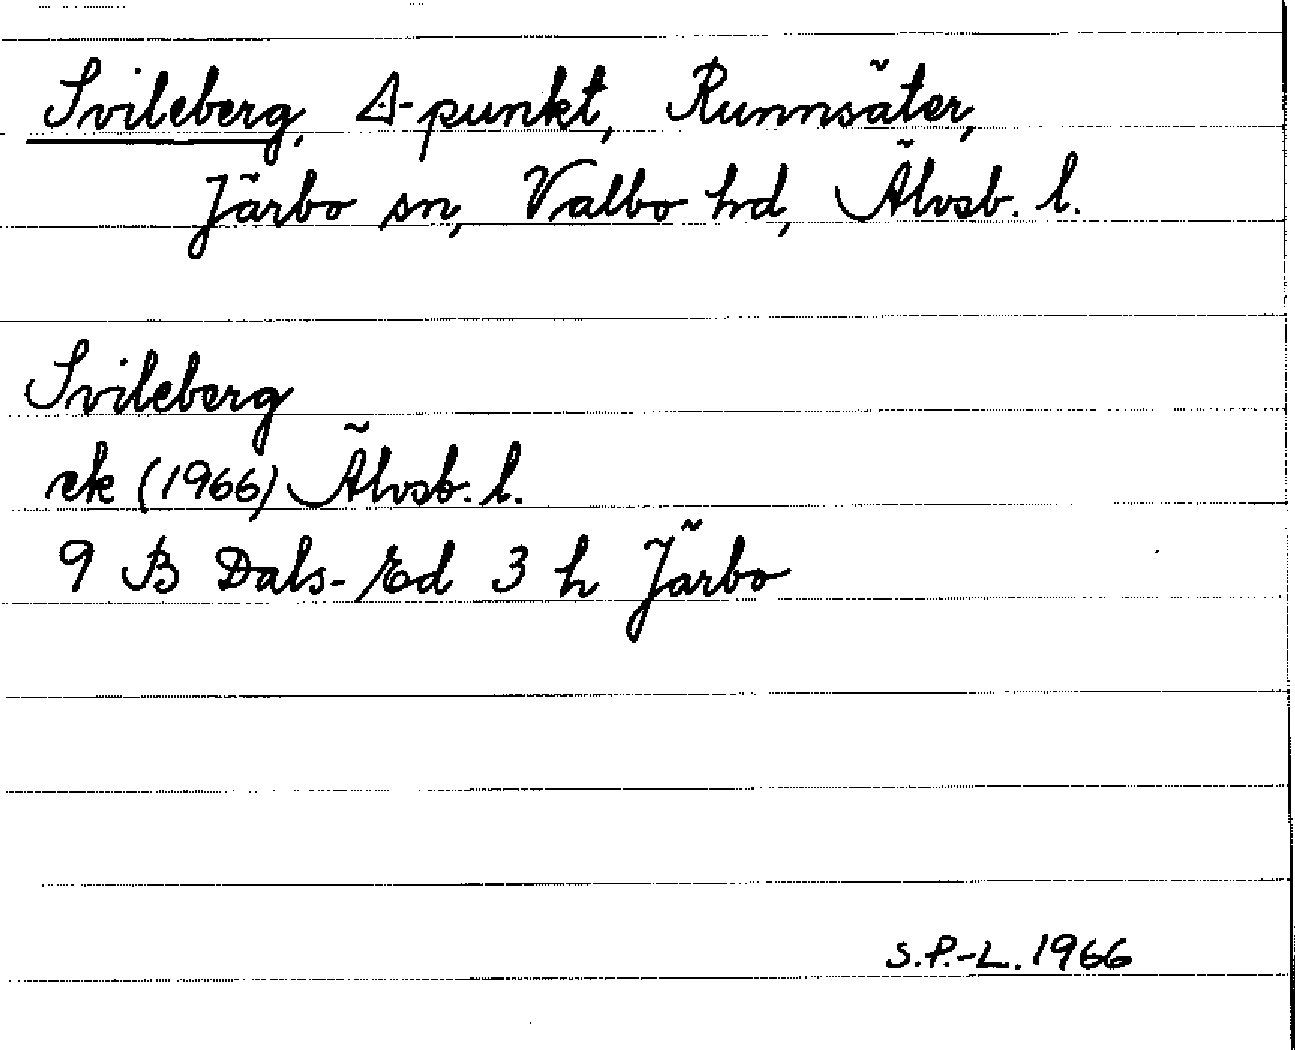 Svileberg, ∆-punkt, Runnsäter,
Järbo sn, Valbo hd, Älvsb. l.
Svileberg
ek (1966) Älvsb. l.
9 B Dals-Ed 3 h Järbo
S.P.-L. 1966